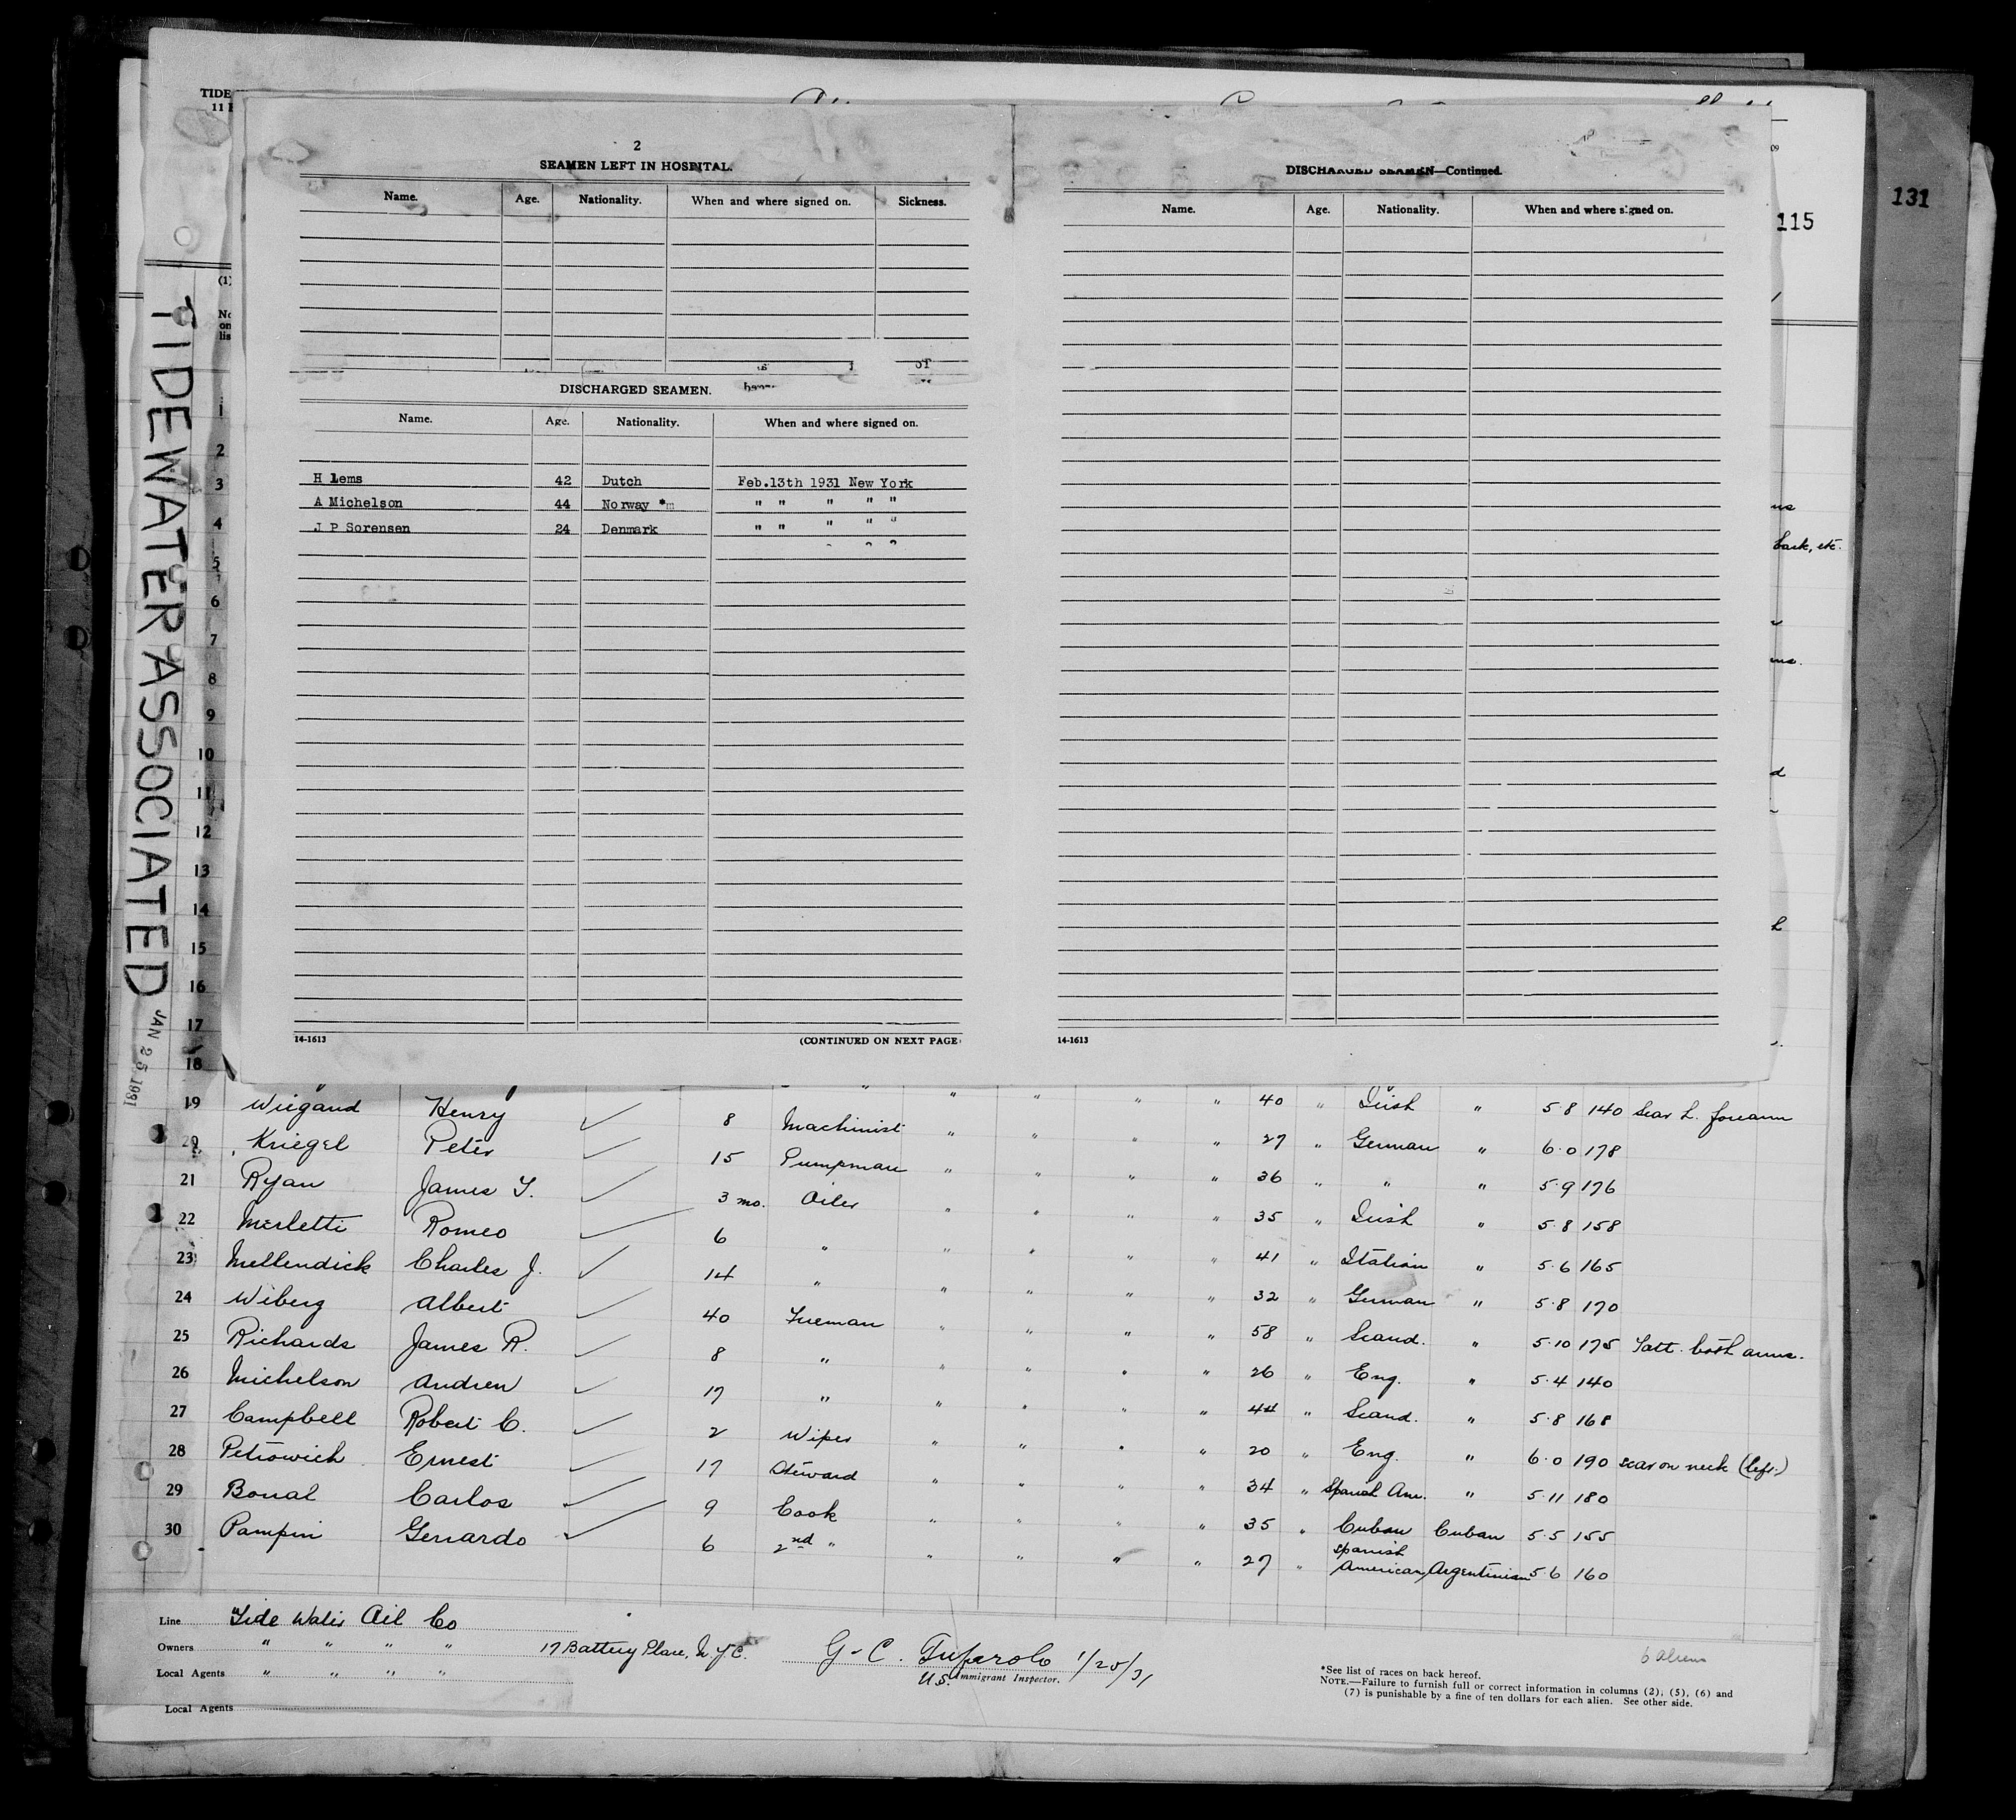 TIDE
11
131
115
2
SEAMEN LEFT IN HOSPITAL.
Name. Age. Nationality. When and where signed on. Sickness.
DISCHARGED SEAMEN.
Name. Age. Nationality. When and where signed on.
H Lems 42 Dutch Feb.13th 1931 New York
A Michelson 44 Norway " " " " "
J P Sorensen 24 Denmark " " " " "
14-1613 (CONTINUED ON NEXT PAGE
DISCHARGED SEAMEN—Continued.
Name. Age. Nationality. When and where signed on.
14-1613
back, etc.
TIDEWATER ASSOCIATED
JAN 25 1931
1
2
3
4
5
6
7
8
9
10
11
12
13
14
15
16
17
18
19 Wiegand Henry 8 Machinist " " " " 40 " Irish " 5 8 140 Scar L. forearm
20 Kriegel Peter 15 Pumpman " " " " 27 " German " 6 0 178
21 Ryan James T. 3 mo. Oiler " " " " 36 " " " 5 9 176
22 Merletti Romeo 6 " " " " " 35 " Irish " 5 8 158
23 Mellendick Charles J. 14 " " " " " 41 " Italian " 5 6 165
24 Wiberg Albert 40 Fireman " " " " 32 " German " 5 8 170
25 Richards James R. 8 " " " " " 58 " Scand. " 5 10 175 Tatt. both arms.
26 Michelson Andrew 17 " " " " " 26 " Eng. " 5 4 140
27 Campbell Robert C. 2 Wiper " " " " 44 " Scand. " 5 8 168
28 Petrowich Ernest 17 Steward " " " " 20 " Eng. " 6 0 190 scar on neck (left)
29 Boual Carlos 9 Cook " " " " 34 " Spanish Am. " 5 11 180
30 Pampin Gerardo 6 2nd " " " " " 35 " Cuban Cuban 5 5 155
27 " Spanish American Argentinian 5 6 160
Line Tide Water Oil Co
Owners " " " " 17 Battery Place, N.Y.C.
Local Agents " " " "
Local Agents
G. C. 1/25/31
U.S. Immigrant Inspector.
6 Aliens
*See list of races on back hereof.
NOTE.—Failure to furnish full or correct information in columns (2), (5), (6) and
(7) is punishable by a fine of ten dollars for each alien. See other side.